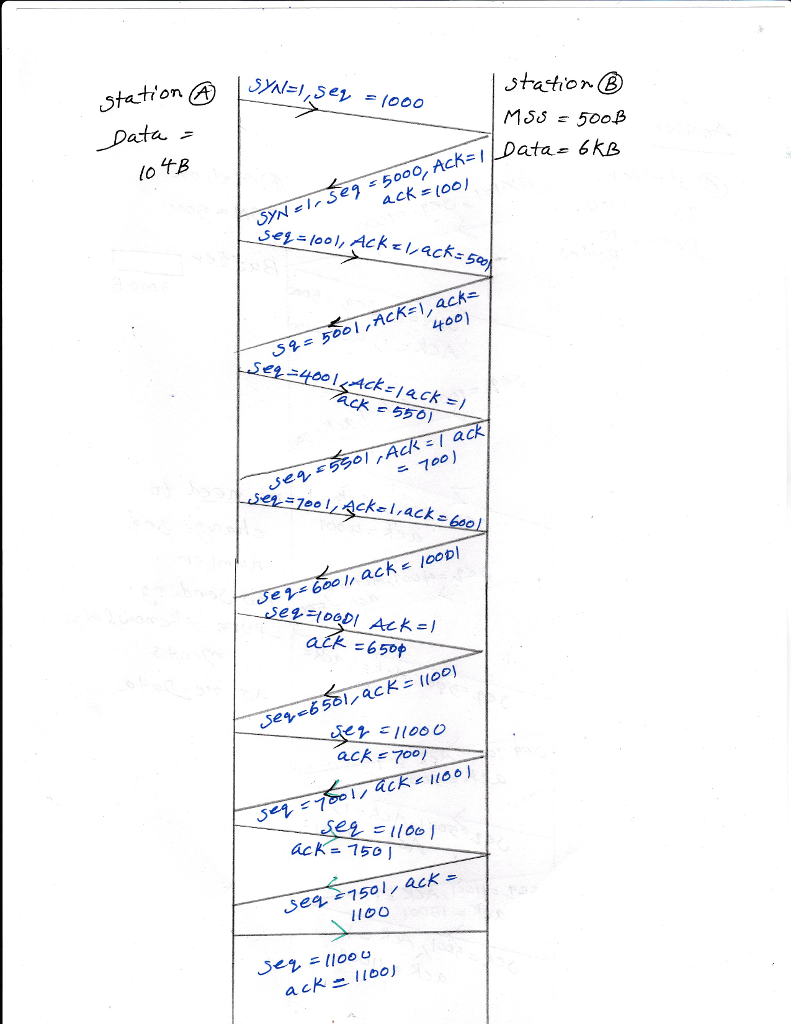 station Ⓐ
Data =
104B
station Ⓑ
MSS = 500B
Data = 6KB
SYN=1, seq = 1000
SYN=1, seq = 5000, Ack=1
ack = 1001
seq=1001, Ack=1, ack=5001
sq = 5001, Ack=1, ack=
4001
seq=4001, Ack=1 ack=1
ack = 5501
seq=5501, Ack=1 ack
= 7001
seq=7001, Ack=1, ack=6001
seq=6001, ack = 10001
seq=10001 Ack=1
ack =6501
seq=6501, ack = 11001
seq = 11000
ack = 7001
seq = 7001, ack = 11001
seq = 11001
ack = 7501
seq = 7501, ack =
1100
seq = 11000
ack = 11001